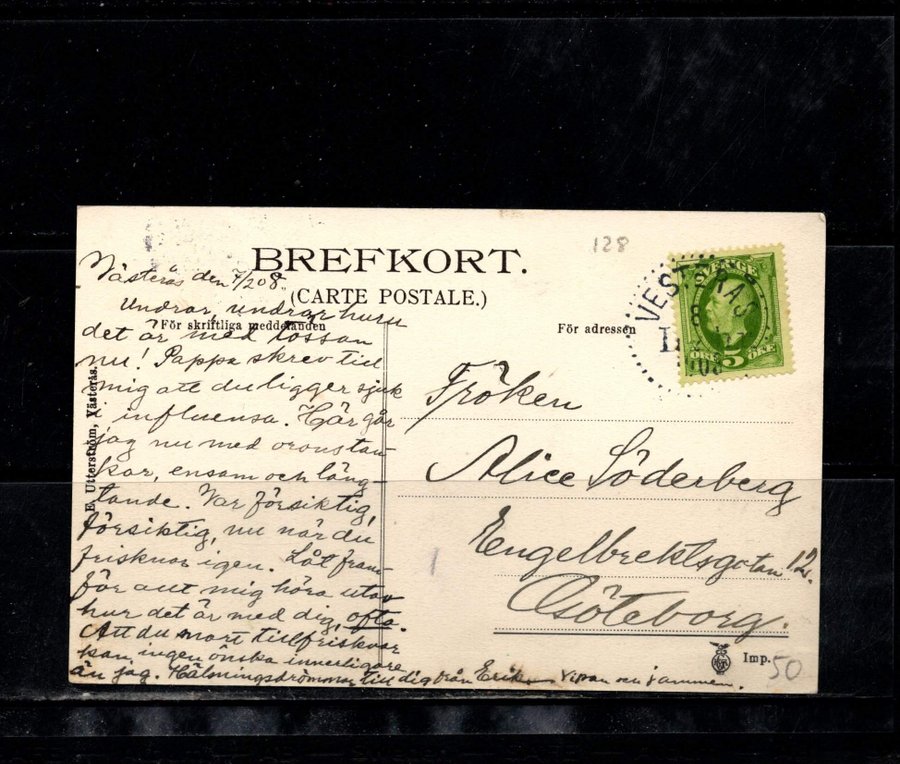 128
BREFKORT.
(CARTE POSTALE.)
För skriftliga meddelanden
För adressen
E. Utterström, Västerås.
Västerås den 7/2 08.
Undrar, undrar huru
det är med tossan
nu! Pappa skrev till
mig att du ligger sjuk
i influensa. Här går
jag nu med orons tan-
kar, ensam och läng-
tande. Var försiktig,
försiktig, nu när du
frisknar igen. Låt fram-
för allt mig höra utav
hur det är med dig, ofta.
Att du snart tillfrisknar
kan ingen önska innerligare
än jag. Hälsningsdrömmar till dig från Erik
SVERIGE
ÖRE 5 ÖRE
VESTERÅS
8
Fröken
Alice Söderberg
Engelbrektsgatan 12.
Göteborg.
Imp.
50